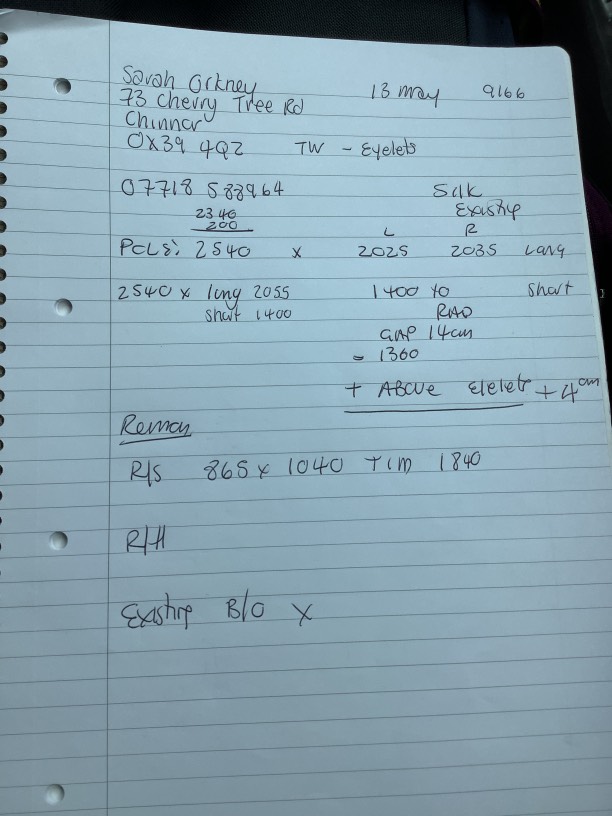 Sarah Orkney 13 may 9166
73 Cherry Tree Rd
Chinnor
OX39 4QZ TW - Eyelets
07718 588964 Silk
2340 Existing
200 L R
POLE: 2540 x 2025 2035 Long
2540 x long 2055 1400 to short
short 1400 RAD
GAP 14cm
= 1360
+ ABOVE Elelets + 4cm
Roman
R/S 865 x 1040 1840
R/H
Existing B/O X